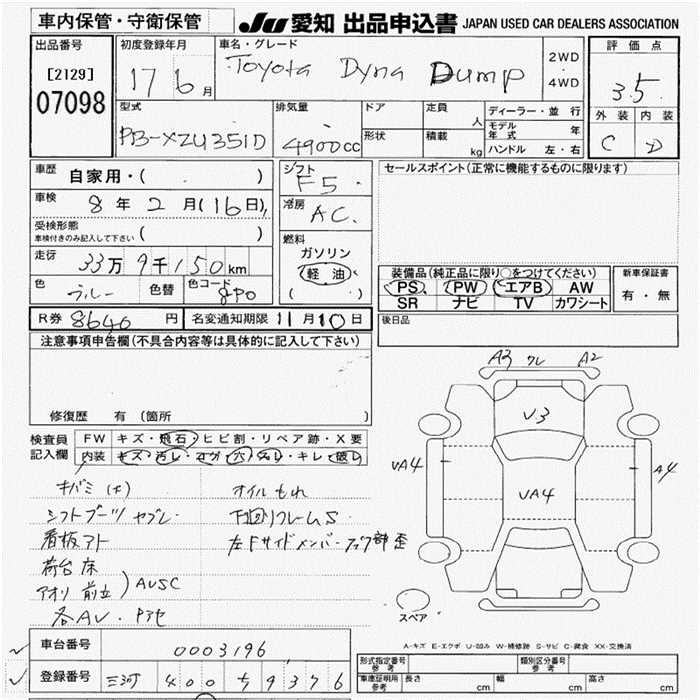 車内保管・守衛保管
JU 愛知 出品申込書 JAPAN USED CAR DEALERS ASSOCIATION
出品番号
[2129]
07098
初度登録年月
17 6月
車名・グレード
Toyota Dyna Dump
2WD
4WD
評価点
3.5
外装 内装
C D
型式
PB-XZU351D
排気量
4900cc
ドア
形状
定員 人
積載 kg
ディーラー・並行
モデル年式 年
ハンドル 左・右
車歴
自家用・( )
車検
8年2月(16日)
受検形態
車検付きのみ記入して下さい ( )
走行
33万9千150km
色 ブルー 色替 色コード 8P0
シフト
F5
冷房
AC
燃料
ガソリン
軽油
( )
セールスポイント(正常に機能するものに限ります)
装備品(純正品に限り○をつけてください)
PS PW エアB AW
SR ナビ TV カワシート
新車保証書
有・無
後日品
R券 8640円 名変通知期限 11月10日
注意事項申告欄(不具合内容等は具体的に記入して下さい)
修復歴 有(箇所 )
検査員記入欄
FW キズ・飛石・ヒビ割・リペア跡・X要
内装 キズ・汚レ・コゲ・穴・スレ・キレ・破レ
キバミ(大)
シフトブーツ ヤブレ
看板アト
荷台 床
アオリ 前立 ) AUSC
各AU・Pアセ
オイルもれ
下回リフレームS
左Fサイドメンバー 部 歪
A3 ワレ A2
V3
UA4
UA4
A4
スペア
A-キズ E-エクボ U-凹み W-補修跡 S-サビ C-腐食 XX-交換済
車台番号 0003196
登録番号 三河 400 す 9376
形式指定番号 参考
類別区分番号 参考
車庫証明用 参考 長さ cm 幅 cm 高さ cm